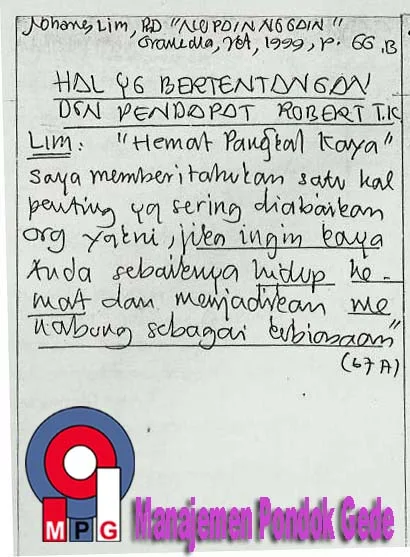 Johanes Lim, PhD "NO PAIN NO GAIN"
Gramedia, Jkt, 1999, P. 66.B
HAL YG BERTENTANGAN
DGN PENDAPAT ROBERT T.K
Lim: "Hemat Pangkal Kaya"
Saya memberitahukan satu hal
penting yg sering diabaikan
org yakni, jika ingin kaya
Anda sebaiknya hidup he-
mat dan menjadikan me
nabung sebagai kebiasaan"
(67 A)
MPG
Manajemen Pondok Gede